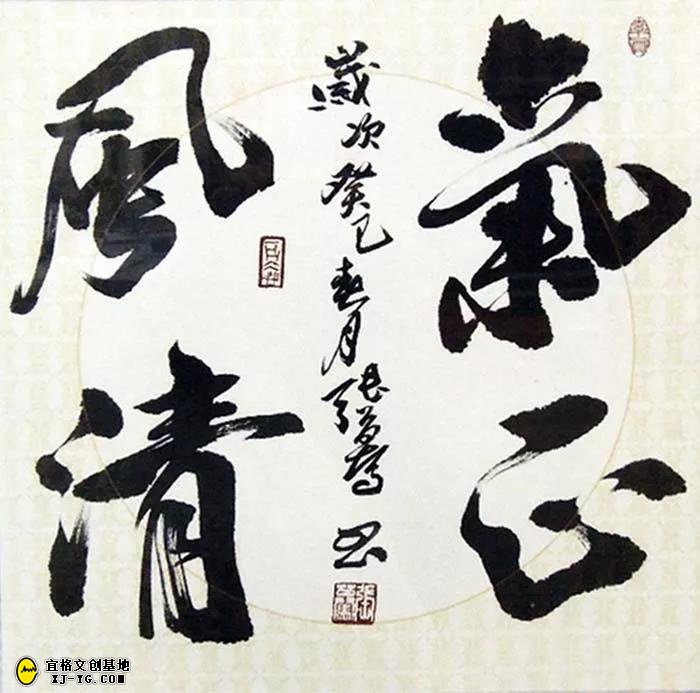 氣正
風清
歲次癸巳春月張
书
宜格文创基地
XJ-YG.COM